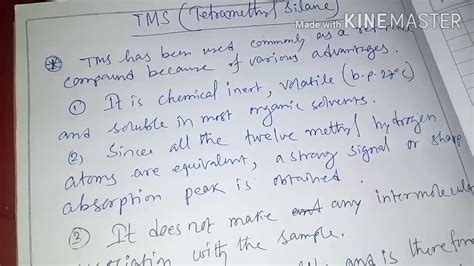 TMS (Tetramethyl Silane)
Made with KINEMASTER
TMS has been used commonly as a
compound because of various advantages.
① It is chemical inert, volatile (b.p. 27°C)
and soluble in most organic solvents.
② Since all the twelve methyl hydrogen
atoms are equivalent, a strong signal or sharp
absorption peak is obtained.
③ It does not make any intermolecul
with the sample.
and is